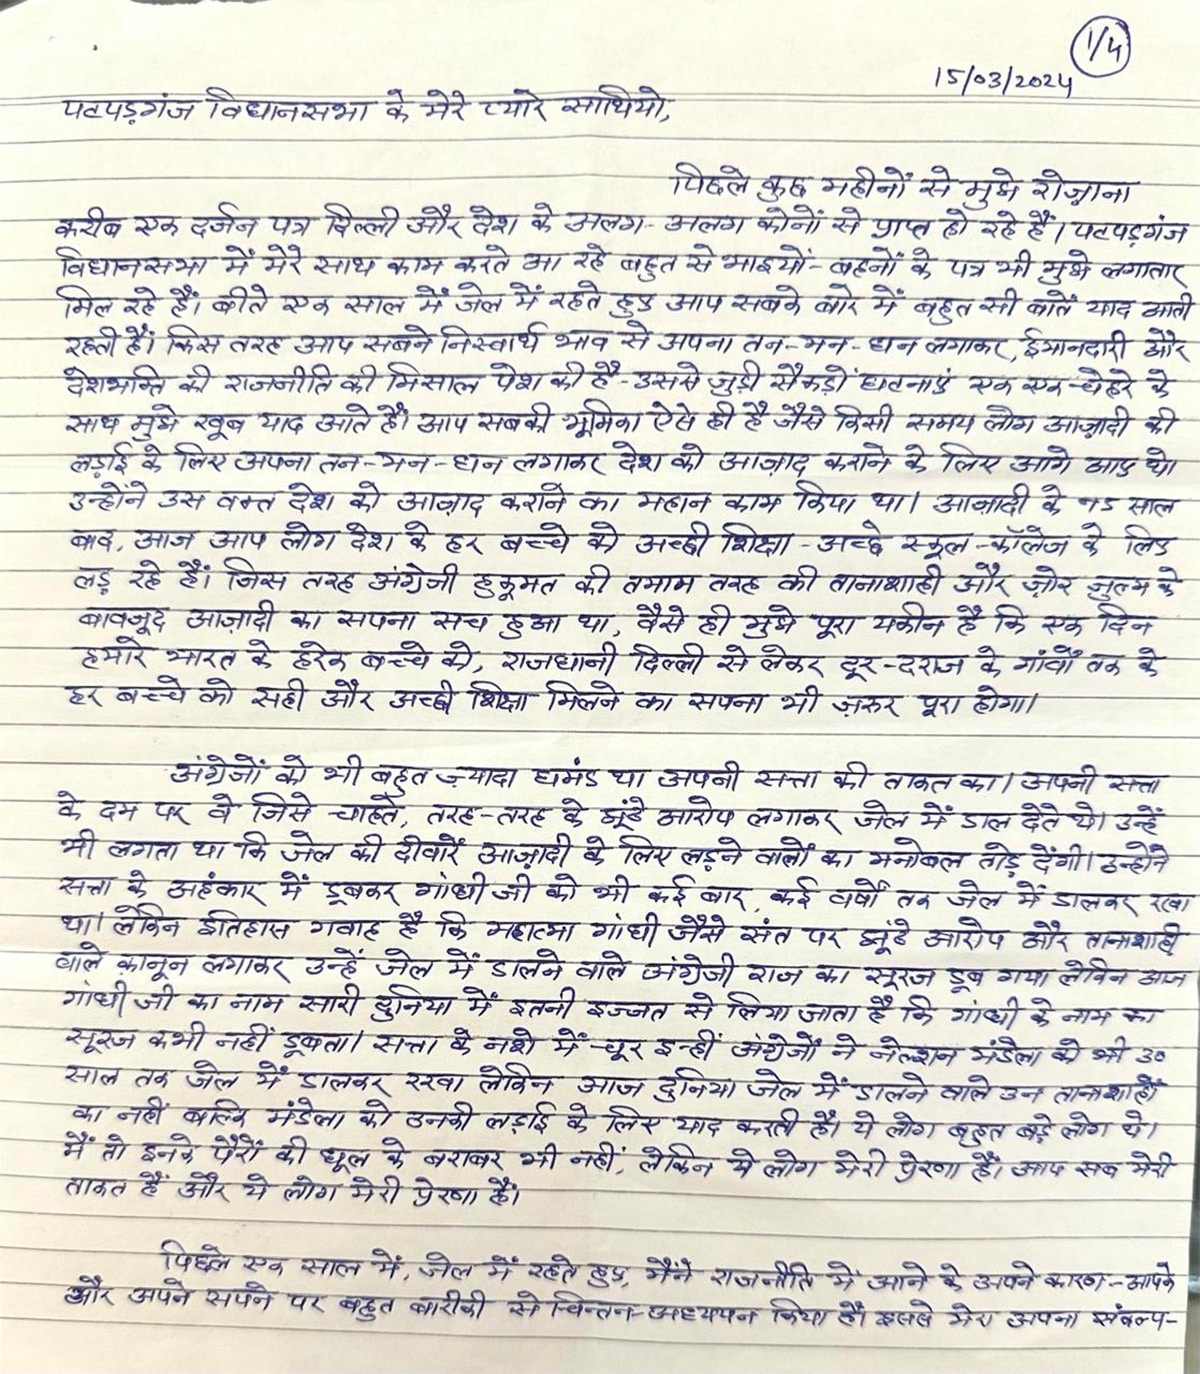 1/4
15/03/2024
पटपड़गंज विधानसभा के मेरे प्यारे साथियो,
पिछले कुछ महीनों से मुझे रोज़ाना
करीब एक दर्जन पत्र दिल्ली और देश के अलग-अलग कोनों से प्राप्त हो रहे हैं। पटपड़गंज
विधानसभा में मेरे साथ काम करते आ रहे बहुत से भाइयों-बहनों के पत्र भी मुझे लगातार
मिल रहे हैं। बीते एक साल में जेल में रहते हुए आप सबके बारे में बहुत सी बातें याद आती
रहती हैं। किस तरह आप सबने निस्वार्थ भाव से अपना तन-मन-धन लगाकर, ईमानदारी और
देशभक्ति की राजनीति की मिसाल पेश की है-उससे जुड़ी सैकड़ों घटनाएं एक एक चेहरे के
साथ मुझे खूब याद आते हैं। आप सबकी भूमिका ऐसे ही है जैसे किसी समय लोग आज़ादी की
लड़ाई के लिए अपना तन-मन-धन लगाकर देश को आज़ाद कराने के लिए आगे आए थे।
उन्होंने उस वक्त देश को आज़ाद कराने का महान काम किया था। आज़ादी के 75 साल
बाद, आज आप लोग देश के हर बच्चे को अच्छी शिक्षा - अच्छे स्कूल-कॉलेज के लिए
लड़ रहे हैं। जिस तरह अंग्रेजी हुकूमत की तमाम तरह की तानाशाही और ज़ोर ज़ुल्म के
बावजूद आज़ादी का सपना सच हुआ था, वैसे ही मुझे पूरा यकीन है कि एक दिन
हमारे भारत के हरेक बच्चे को, राजधानी दिल्ली से लेकर दूर-दराज के गांवों तक के
हर बच्चे को सही और अच्छी शिक्षा मिलने का सपना भी ज़रूर पूरा होगा।
अंग्रेजों को भी बहुत ज़्यादा घमंड था अपनी सत्ता की ताकत का। अपनी सत्ता
के दम पर वे जिसे चाहते, तरह-तरह के झूंठे आरोप लगाकर जेल में डाल देते थे। उन्हें
भी लगता था कि जेल की दीवारें आज़ादी के लिए लड़ने वालों का मनोबल तोड़ देंगी। उन्होंने
सत्ता के अहंकार में डूबकर गांधी जी को भी कई बार, कई वर्षों तक जेल में डालकर रखा
था। लेकिन इतिहास गवाह है कि महात्मा गांधी जैसे संत पर झूंठे आरोप और तानाशाही
वाले क़ानून लगाकर उन्हें जेल में डालने वाले अंग्रेजी राज का सूरज डूब गया लेकिन आज
गांधी जी का नाम सारी दुनिया में इतनी इज्जत से लिया जाता है कि गांधी के नाम का
सूरज कभी नहीं डूबता। सत्ता के नशे में चूर इन्हीं अंग्रेजों ने नेल्शन मंडेला को भी 30
साल तक जेल में डालकर रखा लेकिन आज दुनिया जेल में डालने वाले उन तानाशाहों
का नहीं बल्कि मंडेला को उनकी लड़ाई के लिए याद करती है। ये लोग बहुत बड़े लोग थे।
मैं तो इनके पैरों की धूल के बराबर भी नहीं, लेकिन ये लोग मेरी प्रेरणा हैं। आप सब मेरी
ताकत हैं और ये लोग मेरी प्रेरणा हैं।
पिछले एक साल में, जेल में रहते हुए, मैंने राजनीति में आने के अपने कारण-आपके
और अपने सपने पर बहुत बारीकी से चिन्तन-अध्ययन किया है। इससे मेरा अपना संकल्प-